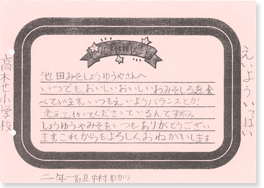 えいよういっぱい
池田みそしょうゆやさんへ
いつでも、おいしいおいしいおみそしるを食
べています。いつもえいようバランスとか
考えて作ってくださっているんですね。
しょうゆやみそを、いつもありがとうござい
ます。これからもよろしくおねがいします。
二年一組
高木せ小学校